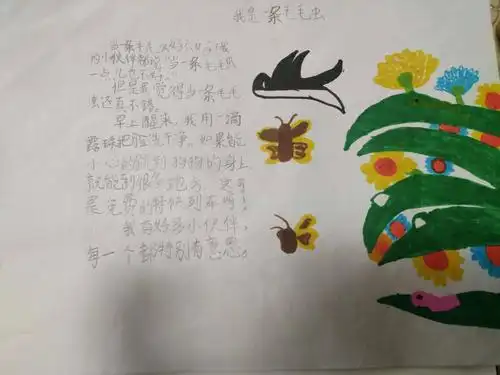 我是一条毛毛虫
当一条毛毛虫
的小伙伴都说,当一条毛毛虫
一点儿也不好。
但是我觉得当一条毛毛
虫还真不错。
早上醒来,我用一滴
露珠把脸洗干净。如果能
小心的爬到狗狗的身上
就能到很多地方,这可
是免费的特快列车啊!
我有好多小伙伴,
每一个都特别有意思。